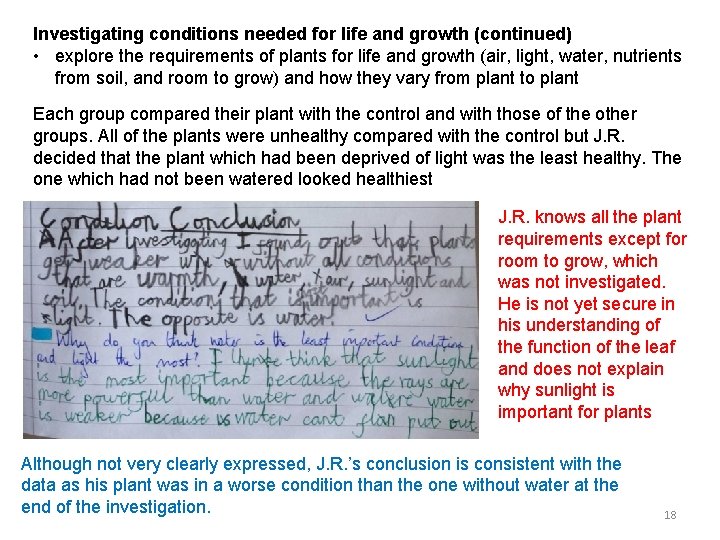 Investigating conditions needed for life and growth (continued)
• explore the requirements of plants for life and growth (air, light, water, nutrients
from soil, and room to grow) and how they vary from plant to plant
Each group compared their plant with the control and with those of the other
groups. All of the plants were unhealthy compared with the control but J.R.
decided that the plant which had been deprived of light was the least healthy. The
one which had not been watered looked healthiest
Condition Conclusion
After investigating I found out that plants
get weaker without all conditions
that are warmth, water, air, sunlight and
soil, The condition that is important is
light. The opposite is water.
Why do you think water is the least important condition
and light the most? I think that sunlight
is the most important because the rays are
more powerful than water and water
is weaker because water cant put out
J.R. knows all the plant
requirements except for
room to grow, which
was not investigated.
He is not yet secure in
his understanding of
the function of the leaf
and does not explain
why sunlight is
important for plants
Although not very clearly expressed, J.R.’s conclusion is consistent with the
data as his plant was in a worse condition than the one without water at the
end of the investigation.
18